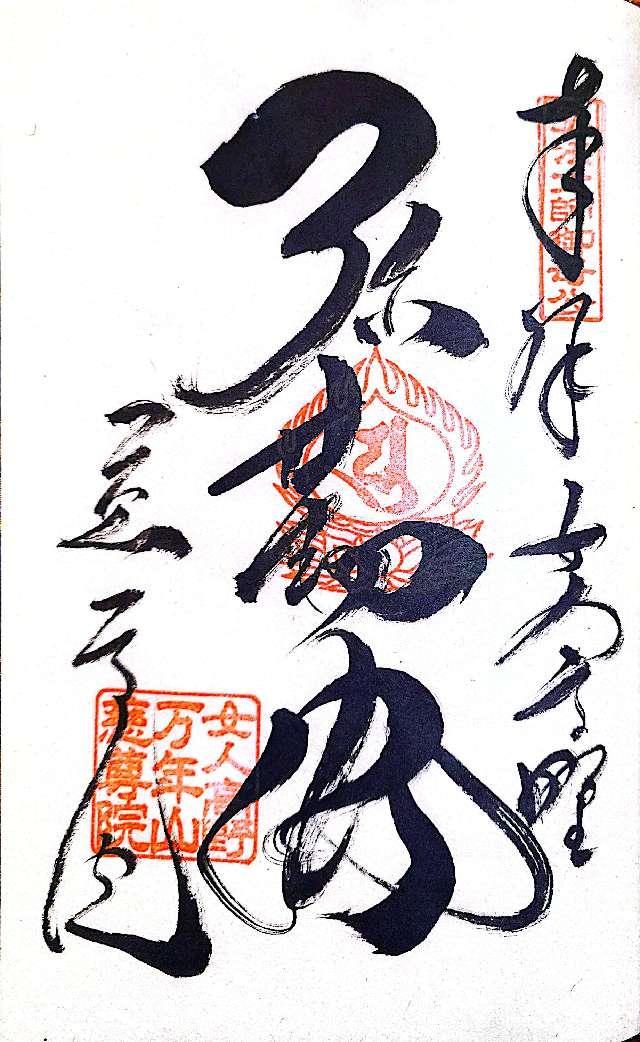 奉拝 女人高野
弥勒佛
慈尊院
女人高野
万年山
慈尊院